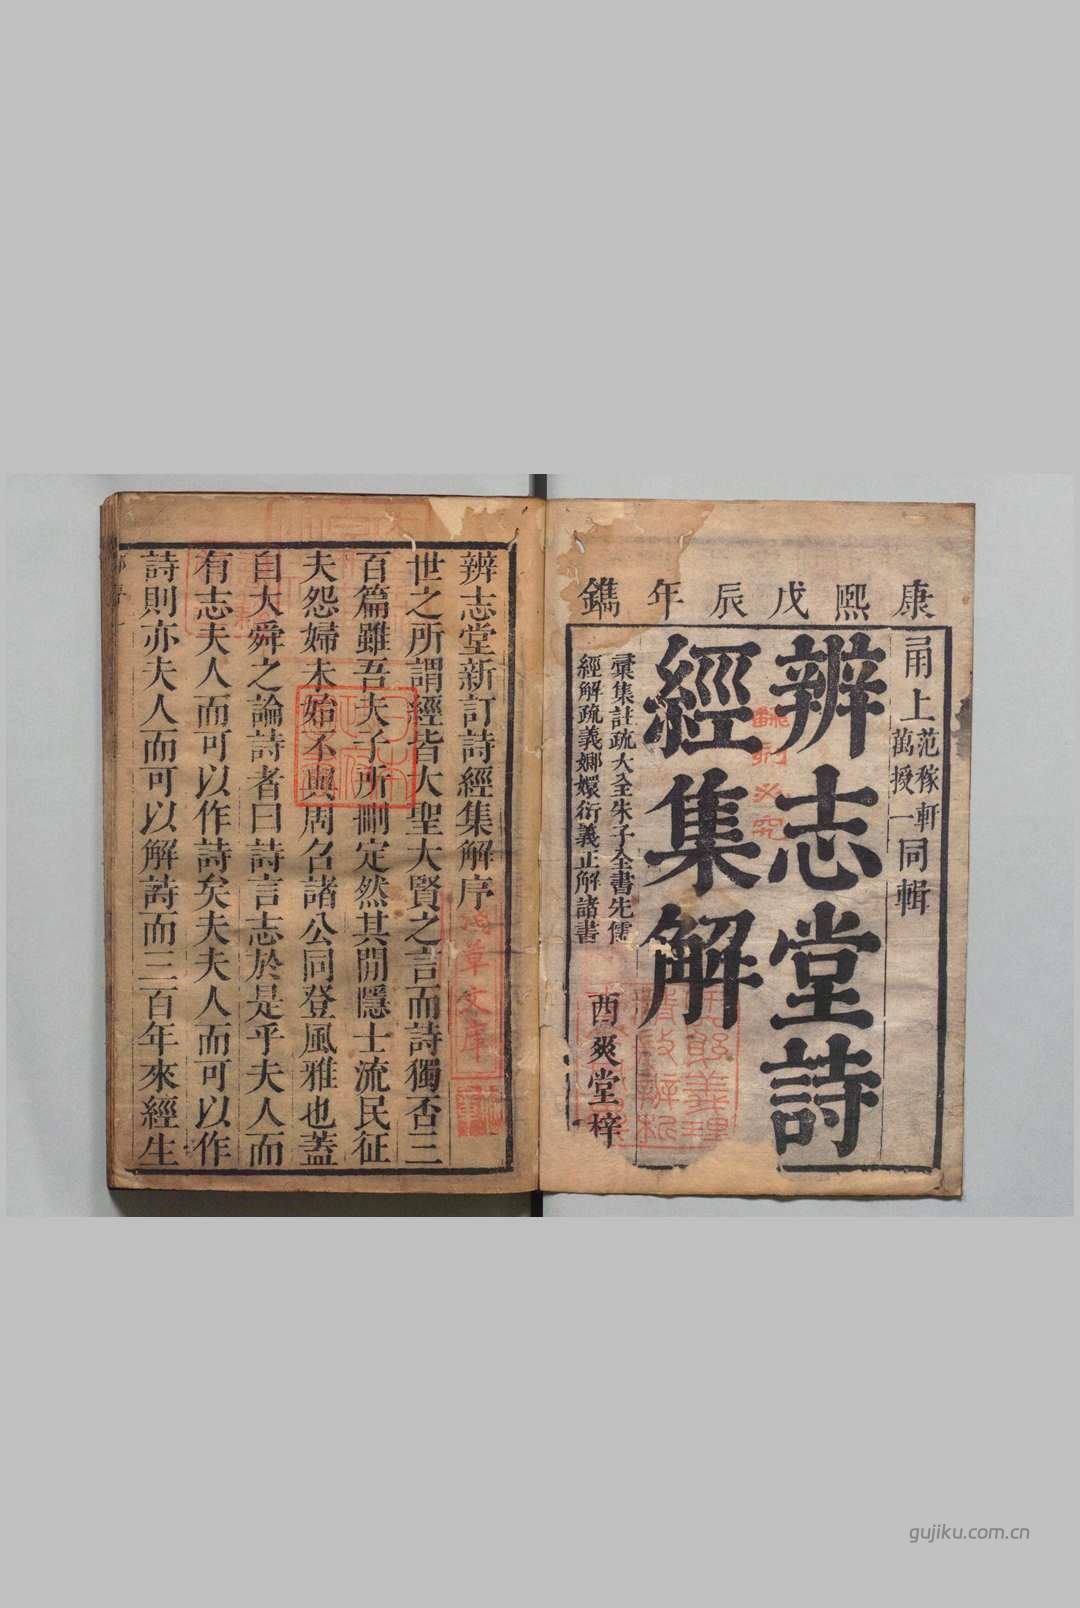 康熙戊辰年鐫
甬上范稼軒萬授一同輯
辨志堂詩
經集解
彙集註疏大全朱子全書先儒
經解疏義嫏嬛衍義正解諸書
酉爽堂梓
翻刻必究
辨志堂新訂詩經集解序
世之所謂經皆大聖大賢之言而詩獨否三
百篇雖吾夫子所刪定然其間隱士流民征
夫怨婦未始不與周召諸公同登風雅也蓋
自大舜之論詩者曰詩言志於是乎夫人而
有志夫人而可以作詩矣夫夫人而可以作
詩則亦夫人而可以解詩而三百年來經生
草文庫
gujiku.com.cn